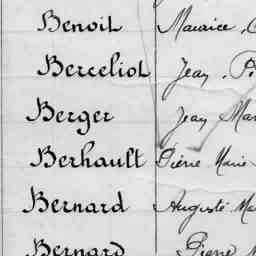 Benoit Maurice
Berceliot Jean . P
Berger Jean Mar
Berhault Pierre Marie
Bernard Auguste Ma
Bernard Pierre